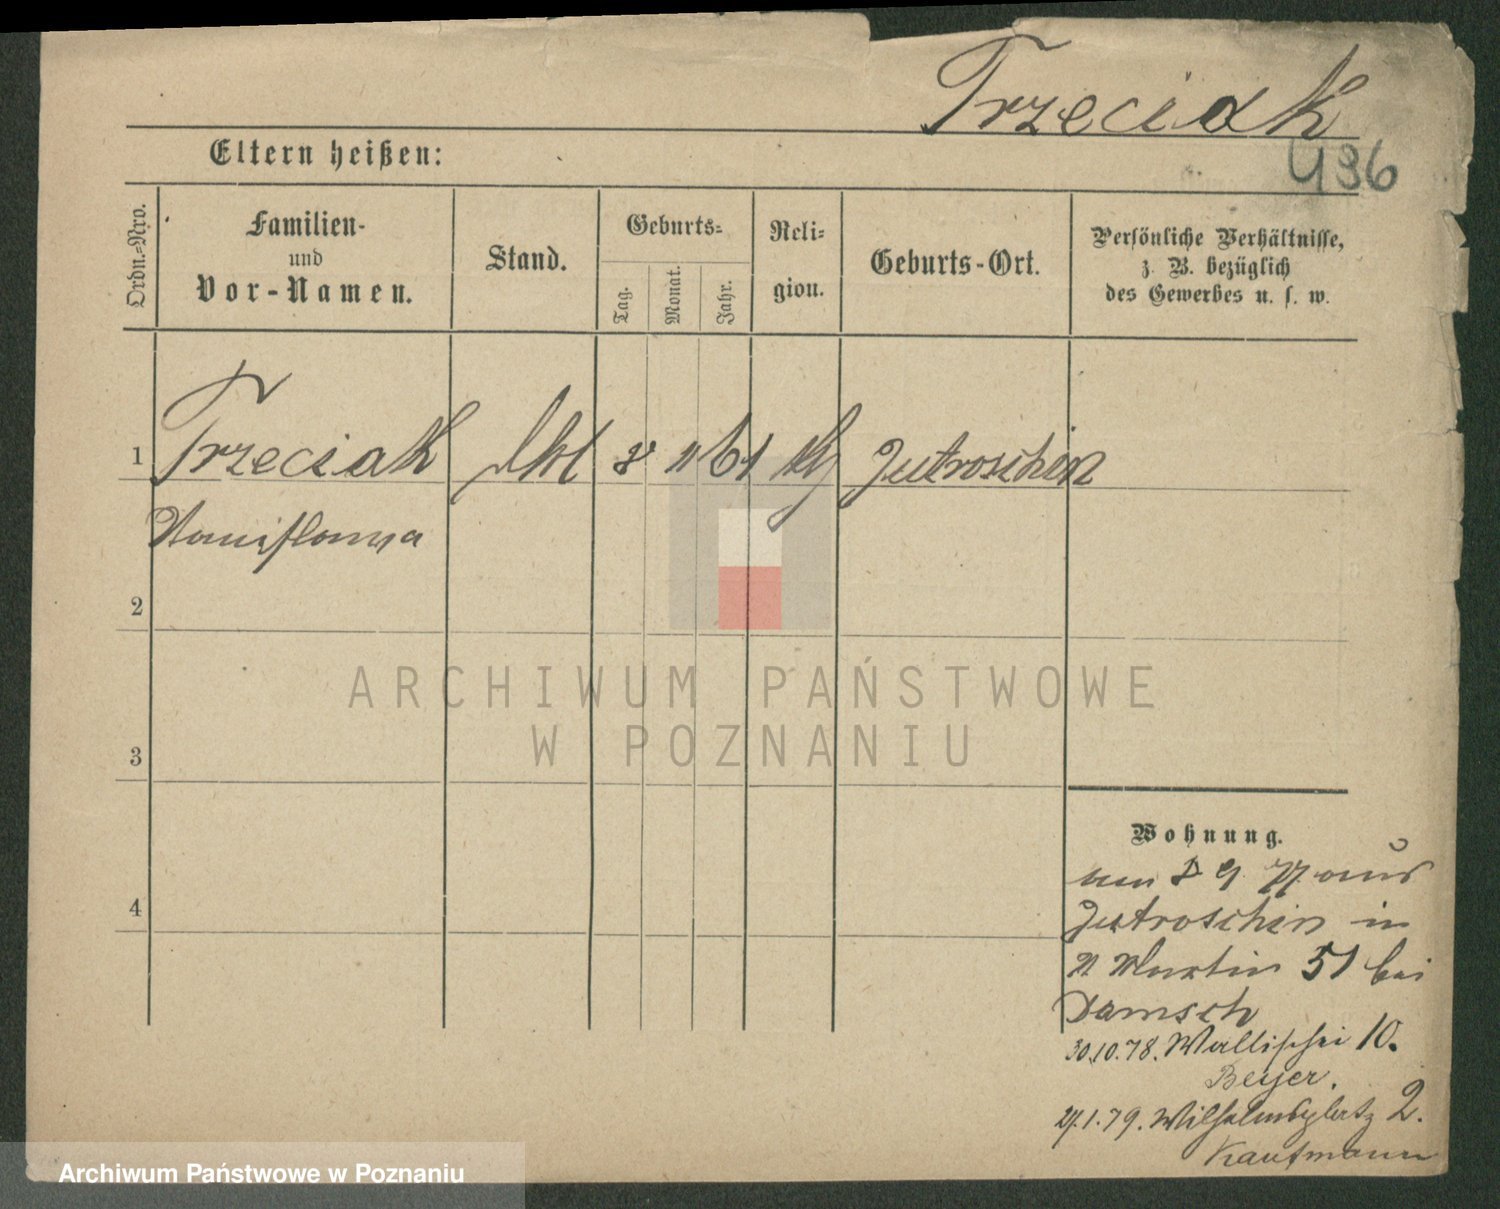 Trzeciak
Eltern heißen:
436
Ordn.-Nro.
Familien-
und
Vor-Namen.
Stand.
Geburts-
Tag.
Monat.
Jahr.
Reli-
gion.
Geburts-Ort.
Persönliche Verhältnisse,
z. B. bezüglich
des Gewerbes u. s. w.
1 Trzeciak 11 61 Jutroschin
Stanislawa
2
ARCHIWUM PAŃSTWOWE
W POZNANIU
3
4
Wohnung.
am 9 77 aus
Jutroschin in
Martin 51 bei
Damsch
30.10.78. Wallischei 10.
Beyer.
1.79. Wilhelmsplatz 2.
Kaufmann
Archiwum Państwowe w Poznaniu